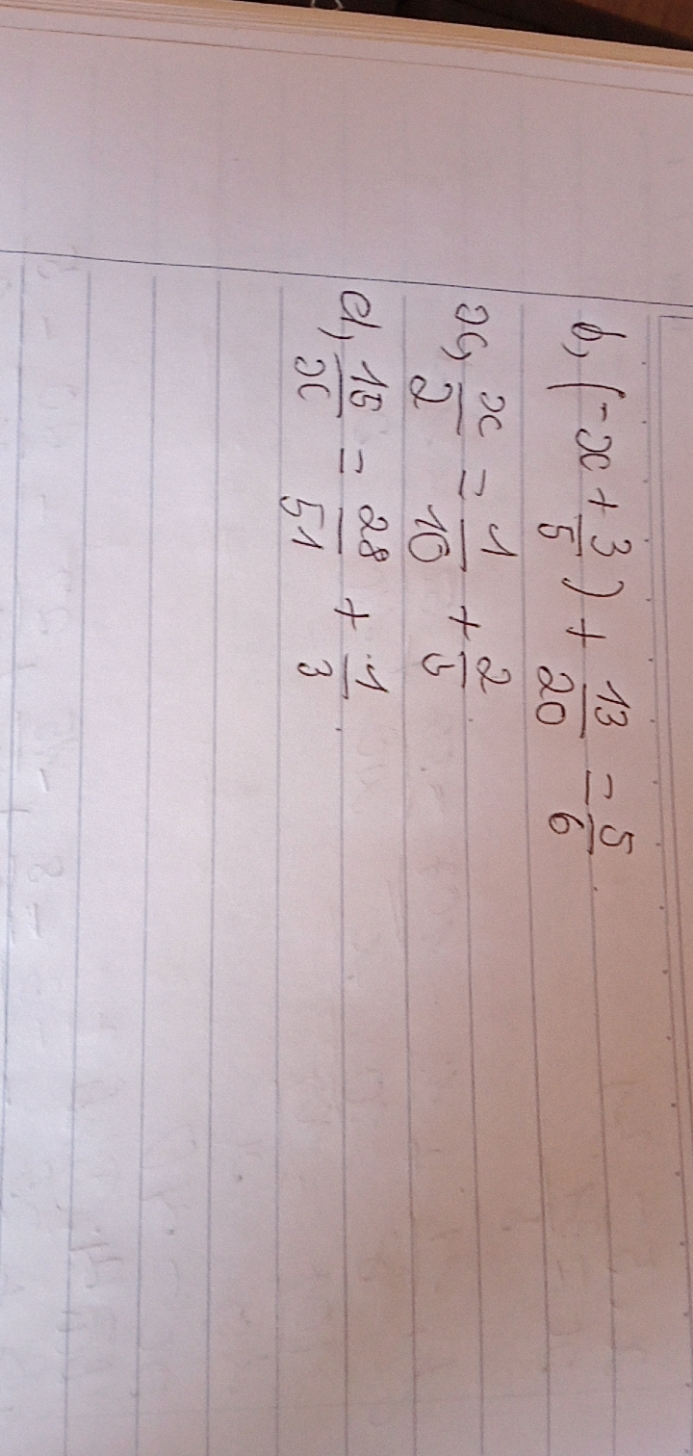 b, (-x + 3/5) + 13/20 = 5/6
x/2 = 1/10 + 2/5
d, 15/x = 28/51 + 1/3